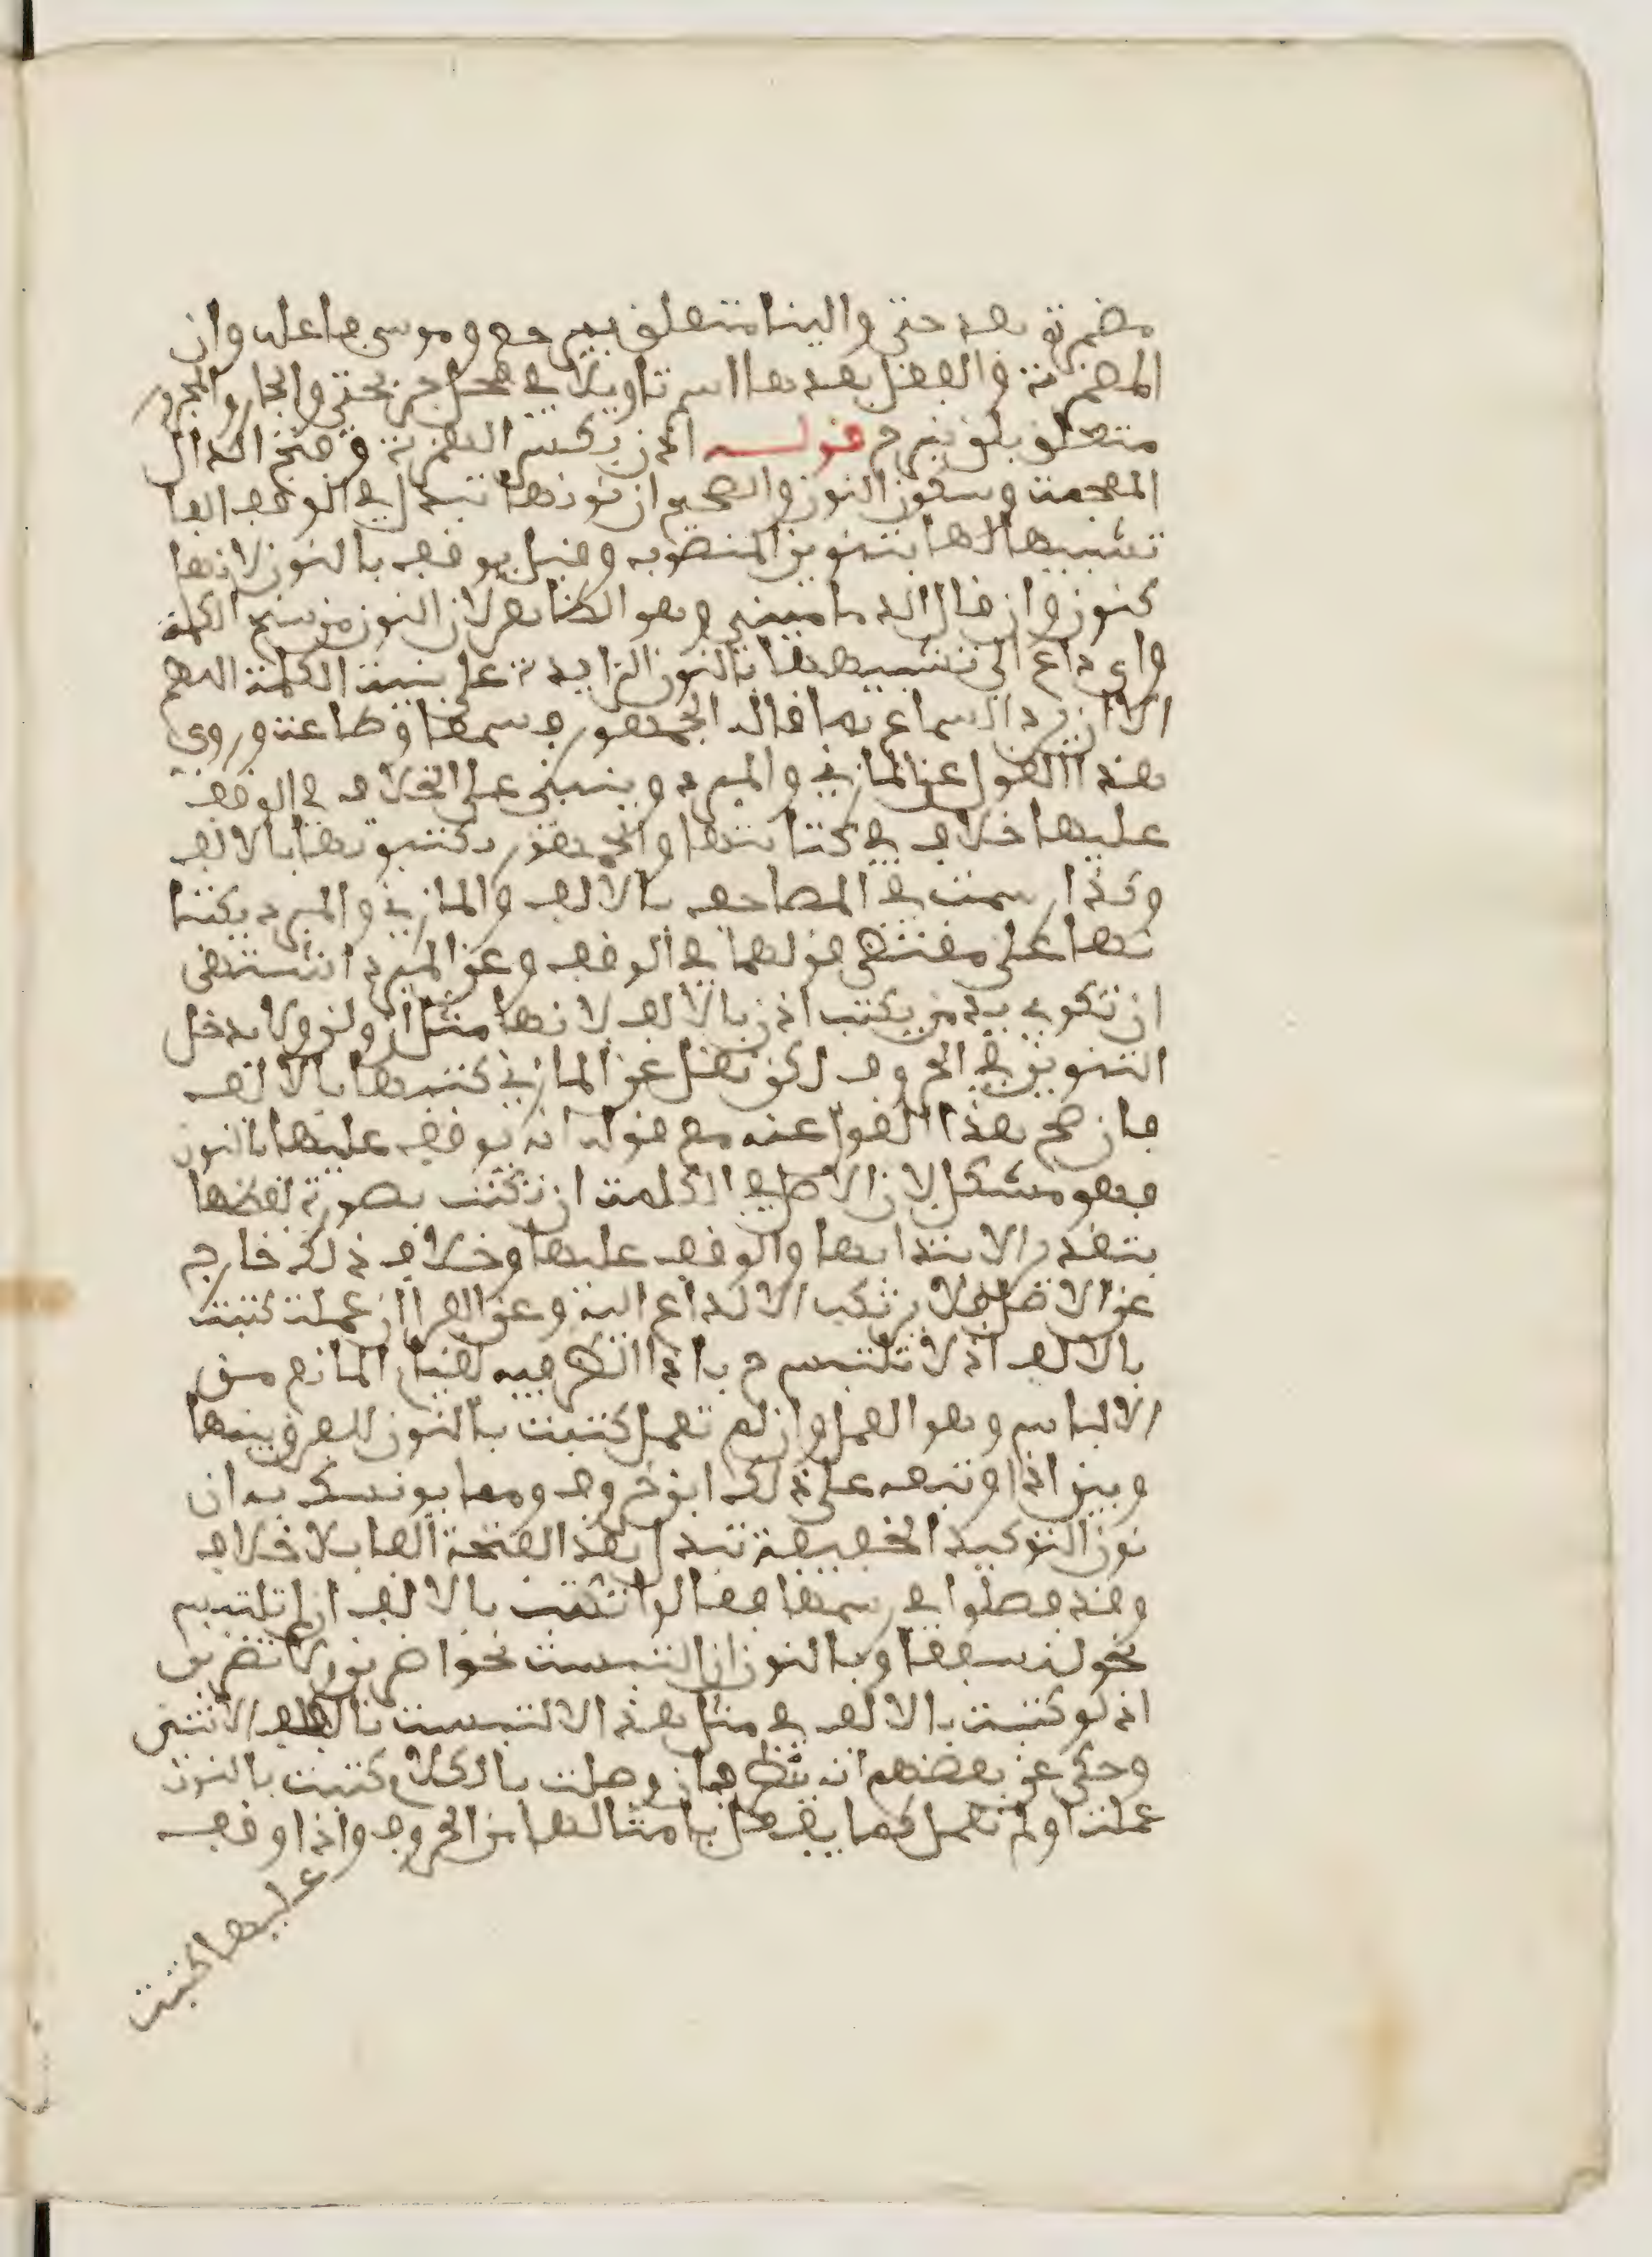 مضمرة بعد حتى والينا متعلق بيرجع وموسى فاعله وان
المضمرة والفعل بعدها اسم تاويلا في محل جر بحتى والجار والمجرور
متعلق بلن نبرح قوله اذن بكسر الهمزة وفتح الذال
المعجمة وسكون النون والصحيح ان نونها تبدل في الوقف الفا
تشبيها لها بتنوين المنصوب وقيل يوقف بالنون لانها
كنون وان قال الدماميني وهو الظاهر لان النون من سنخ الكلمة
واي داع الى تشبيهها بالنون الزايدة على بنية الكلمة اللهم
الا ان يرد السماع بما قاله الجمهور فسمعا وطاعة وروي
هذا القول عن المازني والمبرد وينبني على الخلاف في الوقف
عليها خلاف في كتابتها والجمهور يكتبونها بالالف
وكذا رسمت في المصاحف بالالف والمازني والمبرد يكتبا
نها على مقتضى قولهما في الوقف وعن المبرد اشتهى
ان تكوى يد من يكتب اذن بالالف لانها مثل ان ولن ولا يدخل
التنوين في الحروف لكن نقل عن المازني كتبها بالالف
فان صح هذا القول عنه مع قوله انه يوقف عليها بالنون
فهو مشكل لان الاصل في الكلمة ان تكتب بصورة لفظها
بتقدير الابتدا بها والوقف عليها وخلاف ذلك خارج
عن الاصل فلا يرتكب الا لداع اليه وعن الفرا ان عملت كتبت
بالالف اذ لا تلتبس ح باذا الظرفية لقيام المانع من
الالباس وهو العمل وان لم تعمل كتبت بالنون للفرق بينها
وبين اذا وتبعه على ذلك ابن خروف ومما يونسك به ان
نون التوكيد الخفيفة تبدل بعد الفتحة الفا بلا خلاف
وقد فصلوا في رسمها فقالوا تكتب بالالف ان لم تلتبس
نحو لنسفعا وبالنون ان التبست نحو اضربن ولا تضربن
اذ لو كتبت بالالف في مثل هذا لالتبست بالف الاثنين
وحكي عن بعضهم انه ينظر فان وصلت بالكلام كتبت بالنون
عملت او لم تعمل كما يفعل بامثالها من الحروف واذا وقف
عليها كتبت